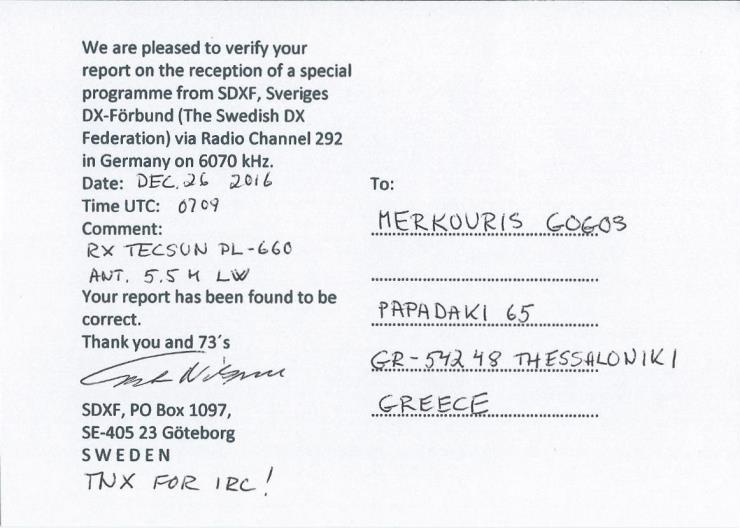 We are pleased to verify your
report on the reception of a special
programme from SDXF, Sveriges
DX-Förbund (The Swedish DX
Federation) via Radio Channel 292
in Germany on 6070 kHz.
Date: DEC. 26 2016
Time UTC: 0709
Comment:
RX TECSUN PL-660
ANT. 5.5 M LW
Your report has been found to be
correct.
Thank you and 73´s
SDXF, PO Box 1097,
SE-405 23 Göteborg
SWEDEN
TNX FOR IRC!
To:
MERKOURIS GOGOS
PAPADAKI 65
GR-542 48 THESSALONIKI
GREECE